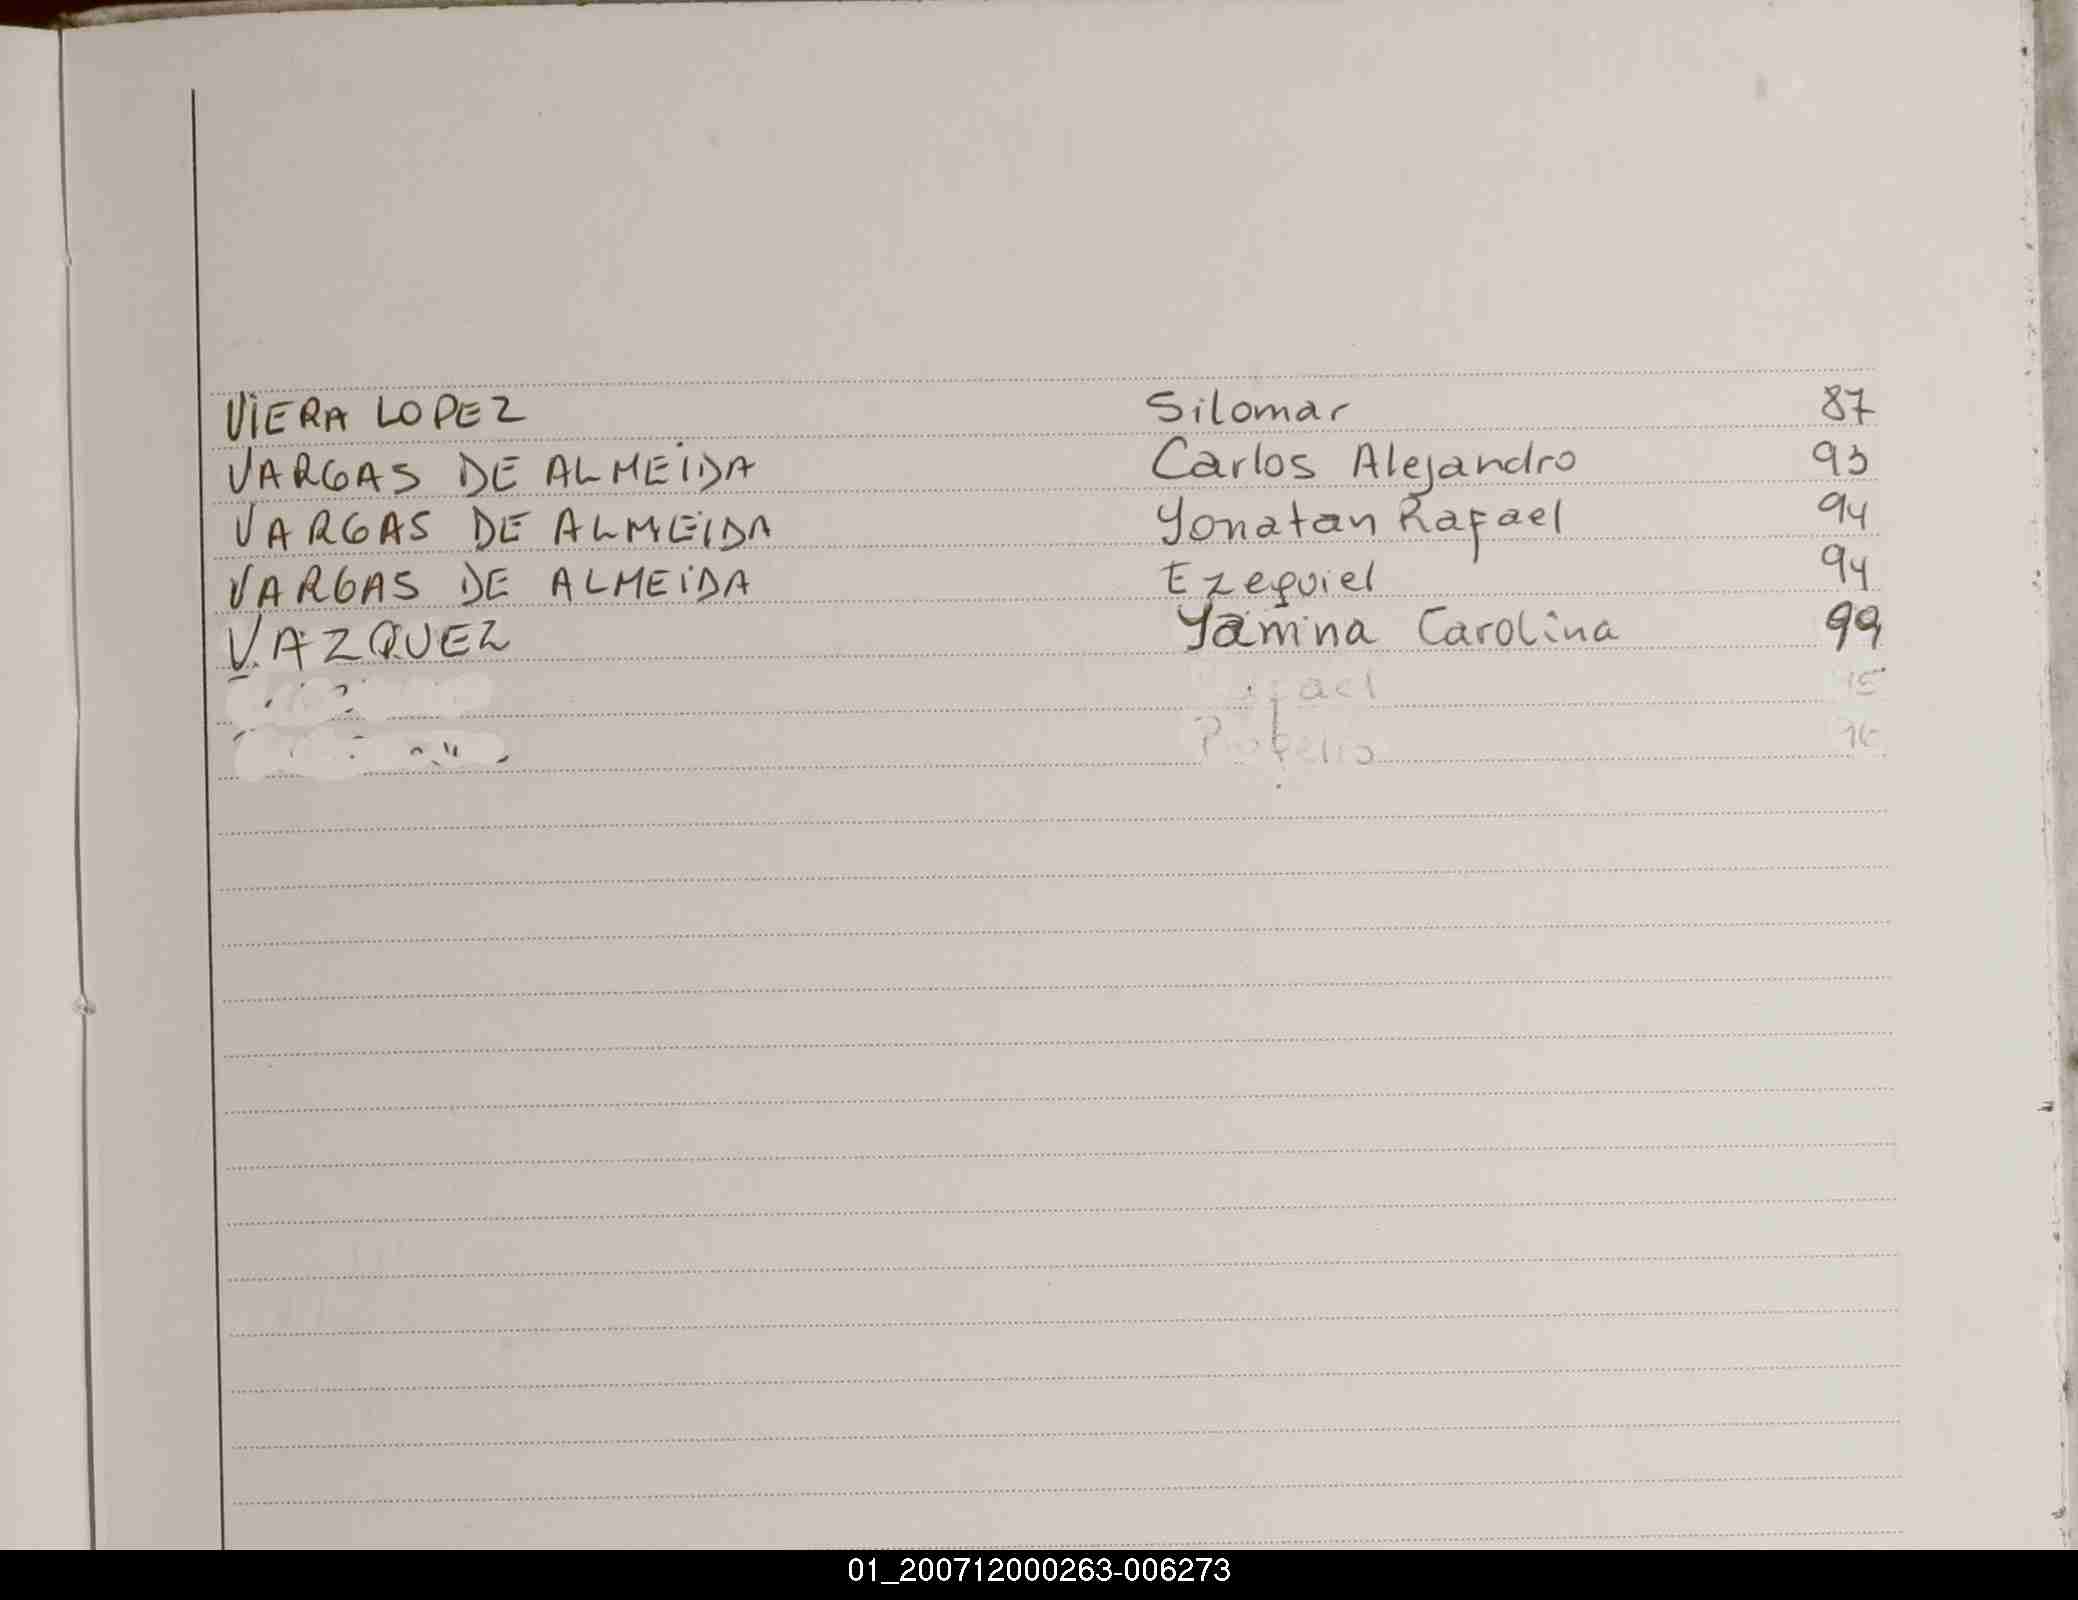 VIERA LOPEZ Silomar 87
VARGAS DE ALMEIDA Carlos Alejandro 93
VARGAS DE ALMEIDA Yonatan Rafael 94
VARGAS DE ALMEIDA Ezequiel 94
VAZQUEZ Yamina Carolina 99
01_200712000263-006273